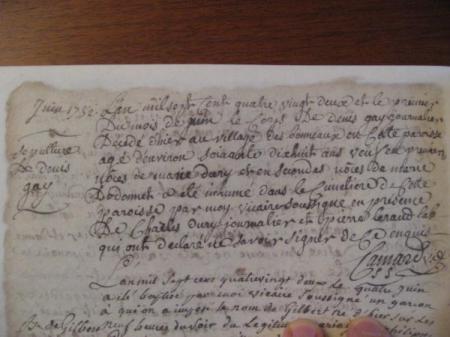 Juin 1782 L'an mil sept cent quatre vingt deux et le premier
Du mois de juin le Corps De Denis gay journalier
Décédé d'hier au village des en Cette paroisse
Sepulture agé d'environ soixante dixhuit ans veuf en premier
De Denis nôces de marie dury et en secondes nôces de marie
gay Dodonnet a eté inhumé dans le Cimetiere de Cette
paroisse par moy vicaire soussigné en presence
De Charles Dury journalier et pierre Giraud
qui ont declaré ne savoir signer de ce enquis
Camard
L'an mil Sept cens quatrevingt deux le quatre juin
a eté baptisé par moi vicaire Soussigné un garcon
a qui on a imposé le nom de Gilbert né d'hier sur Les
B. de Gilbert neuf heures du soir du Legitime mariage